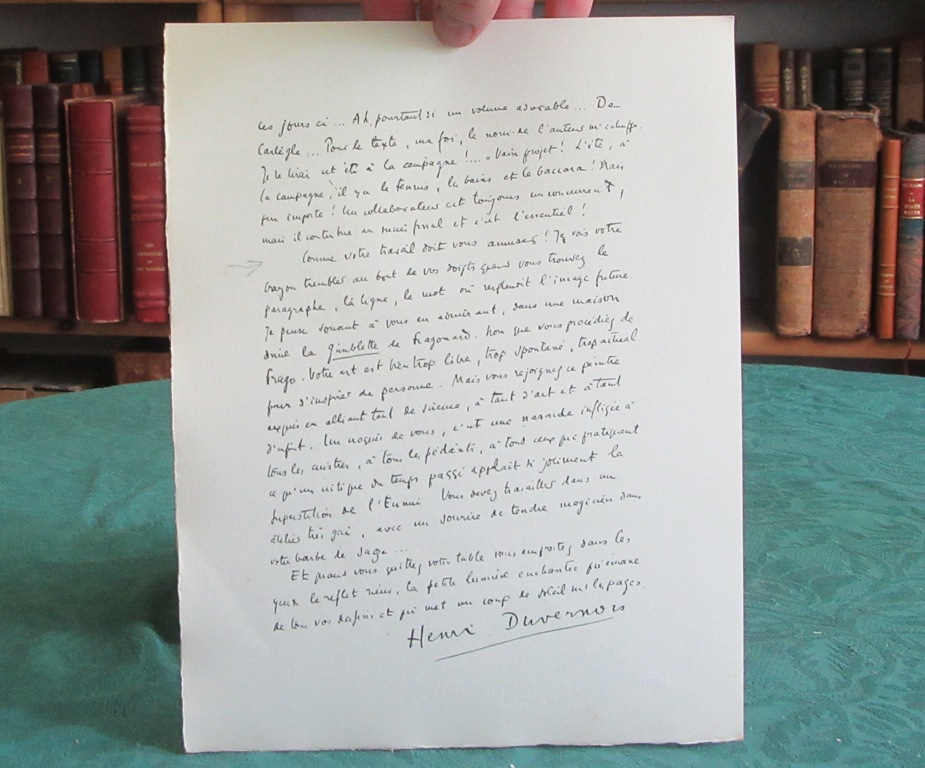 ces jours ci... Ah, pourtant si un volume adorable... De
Carlègle... Pour le texte, ma foi, le nom de l'auteur m'échappe.
Je le lirai cet été à la campagne !... Vain projet ! L'été, à
la campagne, il y a le tennis, les bains et le baccara ! Mais
peu importe ! Un collaborateur est toujours un concurrent,
mais il contribue au succès final et c'est l'essentiel !
Comme votre travail doit vous amuser ! Je vois votre
crayon trembler au bout de vos doigts quand vous trouvez le
paragraphe, la ligne, le mot où resplendit l'image future
Je pense souvent à vous en admirant, dans une maison
amie la Gimblette de Fragonard. Non que vous procédiez de
Frago. Votre art est bien trop libre, trop spontané, trop actuel
pour s'inspirer de personne. Mais vous rejoignez ce peintre
exquis en alliant tant de science, à tant d'art et à tant
d'esprit. Un croquis de vous, c'est une nasarde infligée à
tous les cuistres, à tous les pédants, à tous ceux qui pratiquent
ce qu'un critique du temps passé appelait si joliment la
superstition de l'Ennui Vous devez travailler dans un
atelier très gai, avec un sourire de tendre magicien dans
votre barbe de sage...
Et quand vous quittez votre table vous emportez dans les
yeux le reflet rieur, la petite lumière enchantée qui émane
de tous vos dessins et qui met un coup de soleil sur les pages.
Henri Duvernois